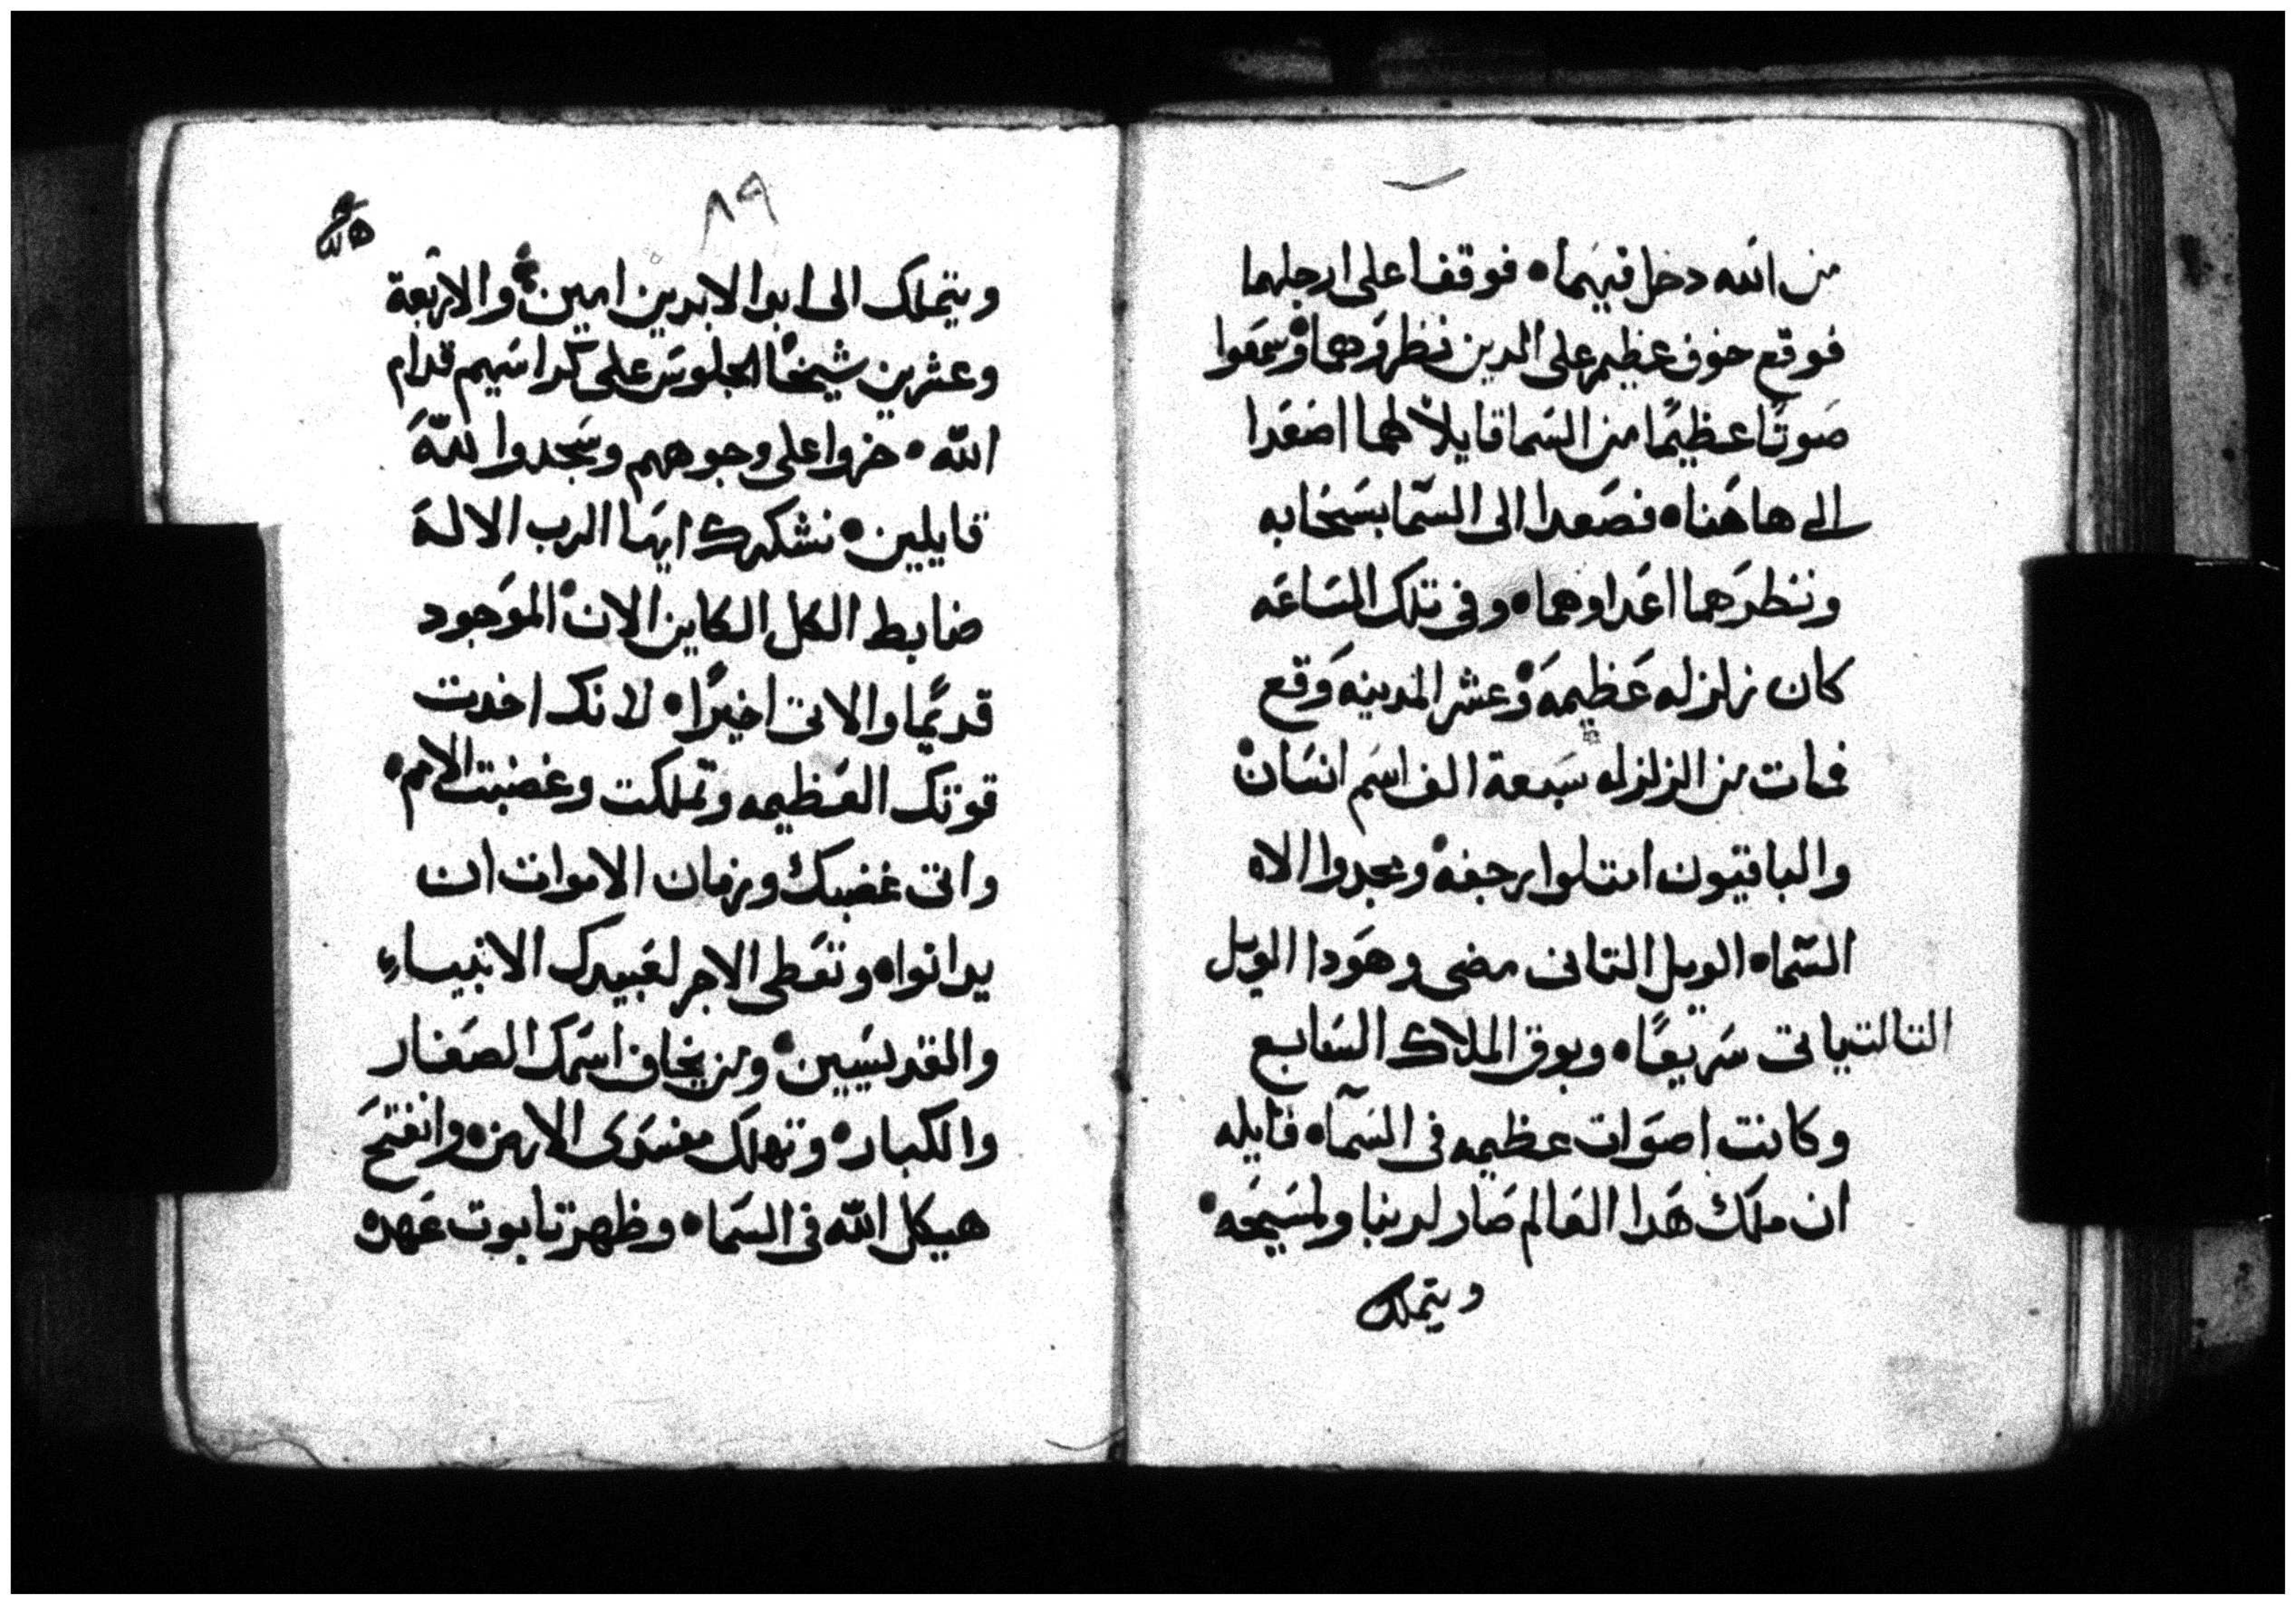 من الله دخل فيهما فوقفا على ارجلهما
فوقع خوف عظيم على الدين نظروهما وسمعوا
صوتًا عظيمًا من السما قايلاً لهما اصعدا
الى هاهنا فصعدا الى السما بسحابه
ونظرهما اعداوهما وفى تلك الساعه
كان زلزله عظيمه وعشر المدينه وقع
فمات من الزلزله سبعة الف اسم انسان
والباقيون امتلوا برجفه ومجدوا الاه
السماه الويل التانى مضى وهودا الويل
التالت ياتى سريعًا وبوق الملاك السابع
وكانت اصوات عظيمه فى السماء قايله
ان ملك هدا العالم صار لربنا ولمسيحه
ويتملك
٨٩
ويتملك الى ابد الابدين امين والاربعة
وعشرين شيخًا الجلوس على كراسيهم قدام
الله خروا على وجوههم وسجدوا لله
قايلين نشكرك ايها الرب الاله
ضابط الكل الكاين الان الموجود
قديمًا والاتى اخيرًا لانك اخدت
قوتك العظيمه وتملكت وغضبت الامم
واتى غضبك وزمان الاموات ان
يدانوا وتعطى الاجر لعبيدك الانبياء
والقديسيين ومن يخاف اسمك الصغار
والكبار وتهلك مفسدى الارض وانفتح
هيكل الله فى السماء وظهر تابوت عهده